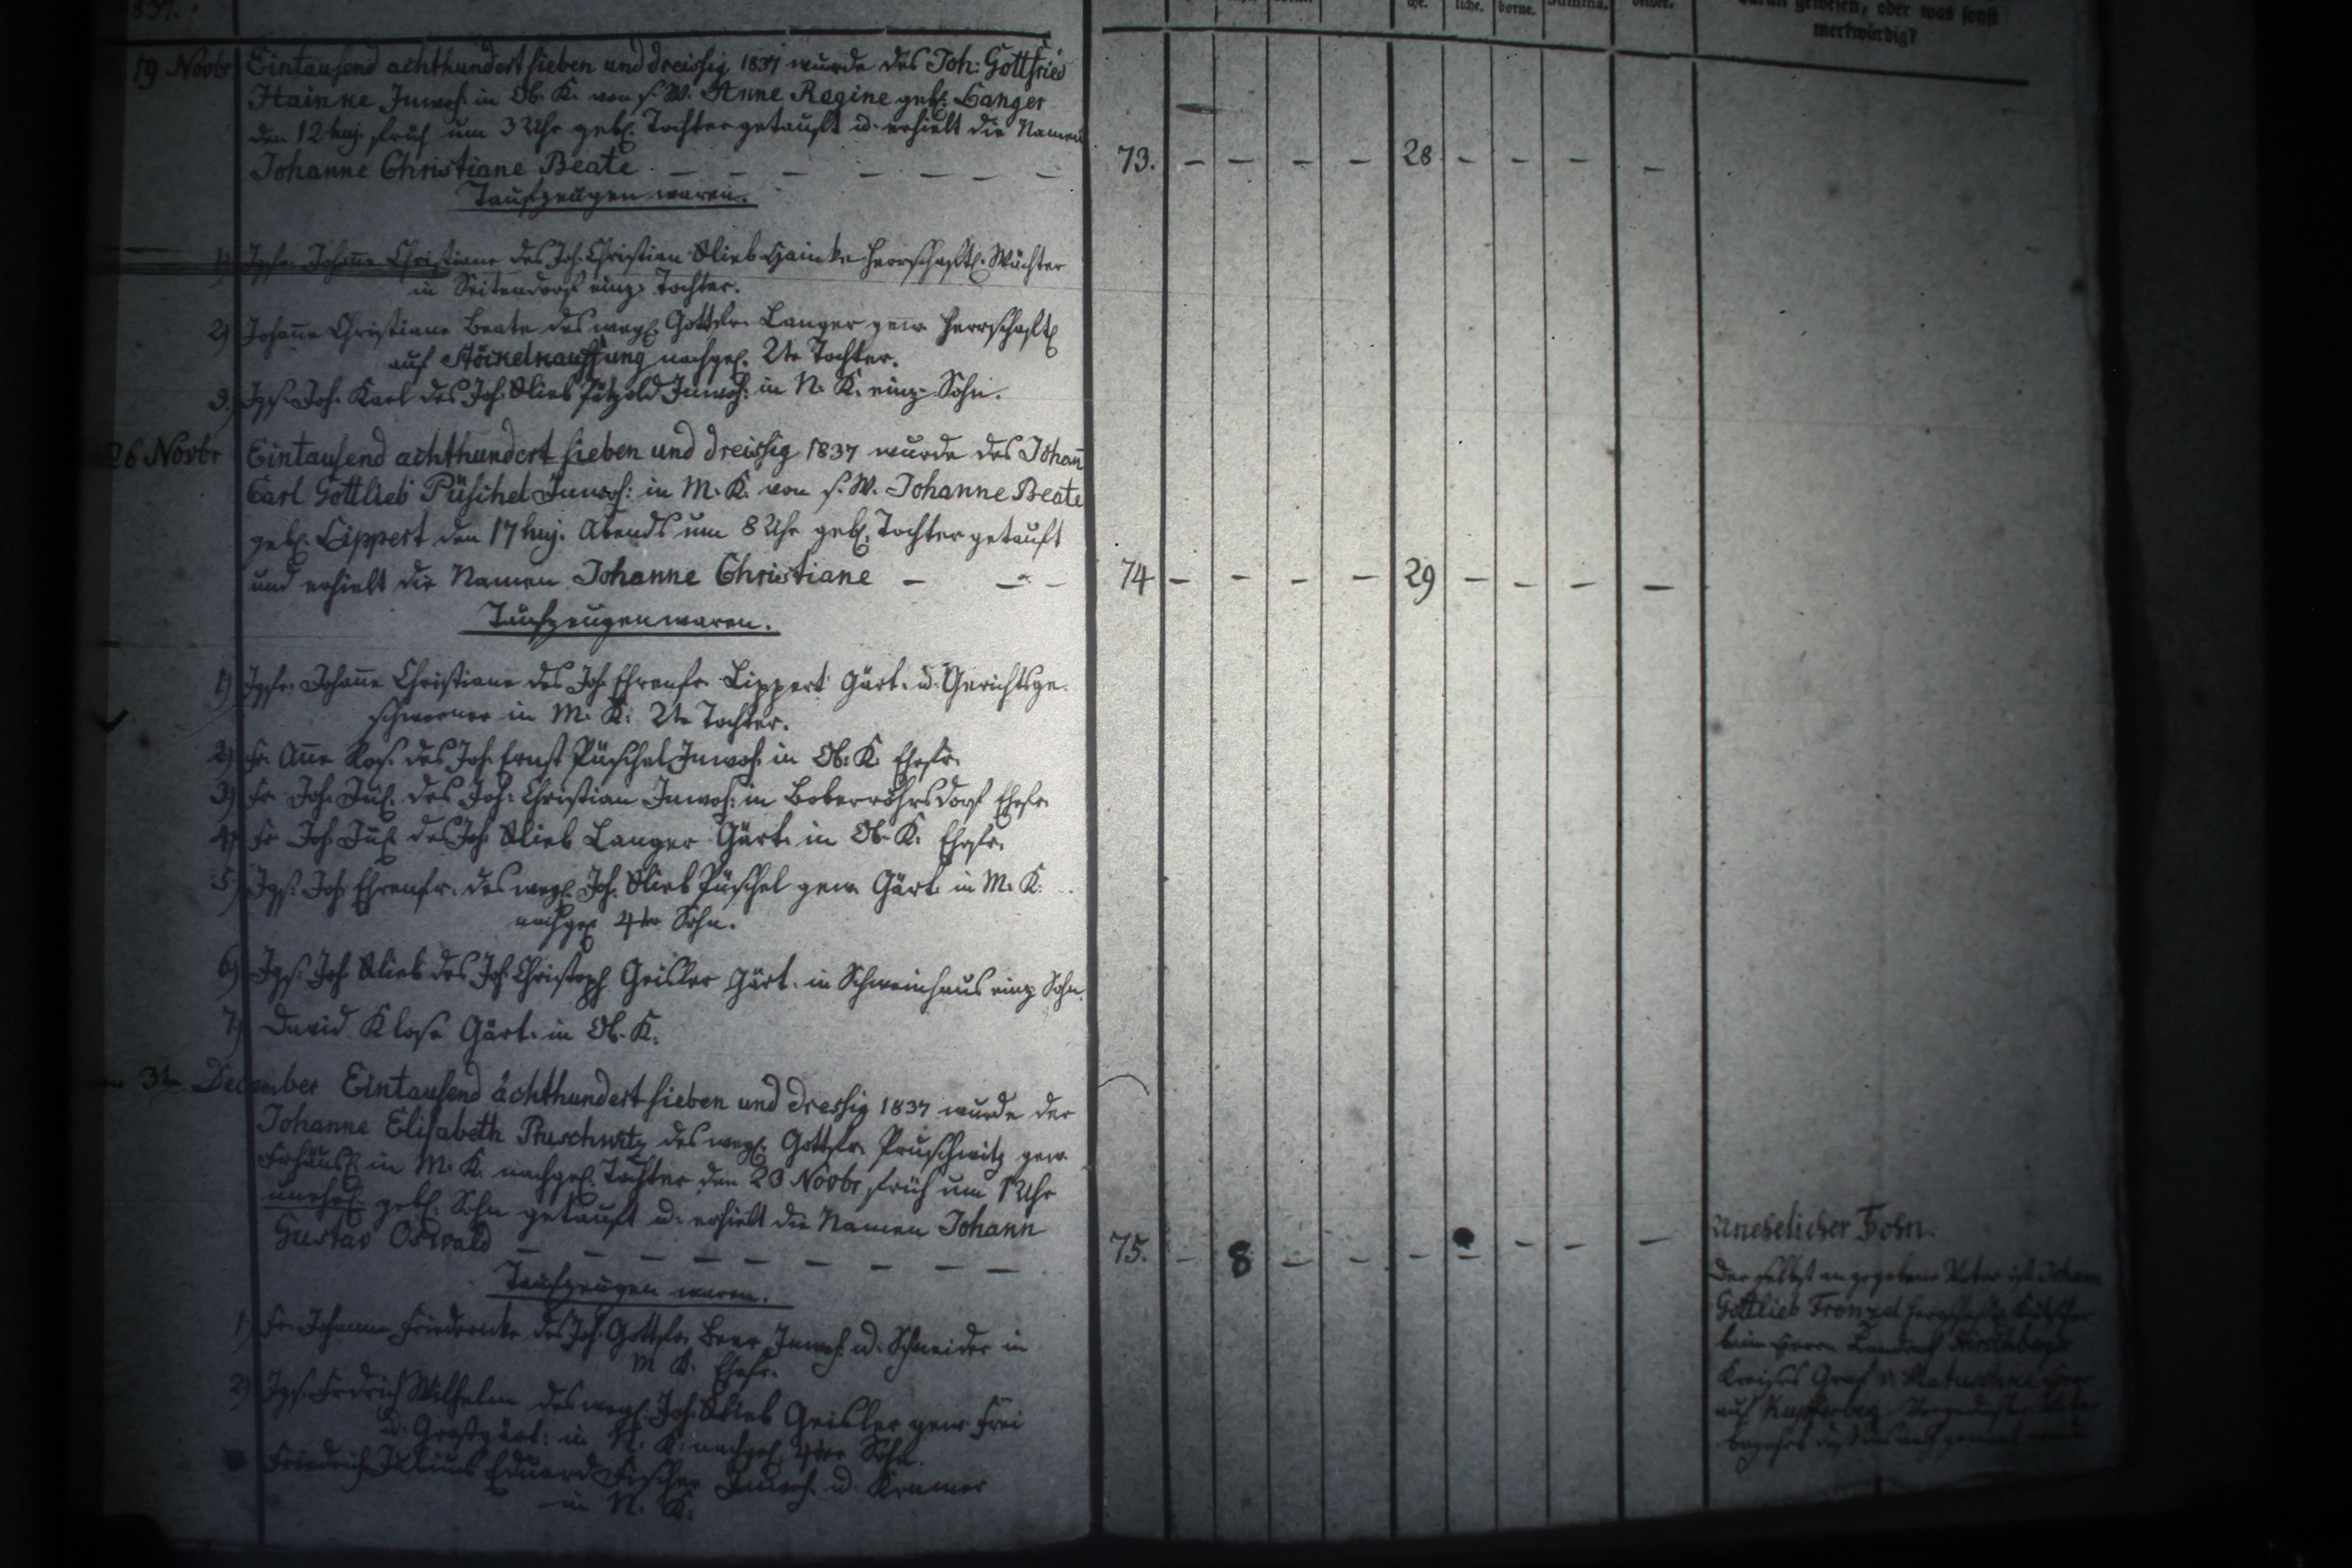 1837.
19 Novbr Eintausend achthundert sieben und dreissig 1837 wurde des Joh: Gottfried
Hainke Inwoh: in Ob. K. von s. W. Anne Regine geb. Langer
den 12 huj. früh um 3 Uhr geb. Tochter getauft u. erhielt die Namen
Johanne Christiane Beate — — — — — — — —
73. — — — — 28 — — — —
Taufzeugen waren.
1) Jgfr. Johane Christiane des Joh. Christian Glieb Hainke herrschaftl. Wächter
in Seitendorf einz. Tochter.
2) Johane Christiane Beate des weyl. Gottfr. Langer gew. herrschaftl.
auf Stöckelkauffung nachgel. 2te Tochter.
3) Jgs. Joh. Karl des Joh. Glieb Pätzold Inwoh. in N. K. einz. Sohn.
26 Novbr Eintausend achthundert sieben und dreissig 1837 wurde des Johan
Carl Gottlieb Püschel Inwoh: in M. K. von s. W. Johanne Beate
geb. Lippert den 17 huj. Abends um 8 Uhr geb. Tochter getauft
und erhielt die Namen Johanne Christiane — — —
74 — — — — 29 — — — —
Taufzeugen waren.
1) Jgfr. Johane Christiane des Joh Ehrenfr. Lippert Gärt. u. Gerichtsge-
schworner in M. K. 2te Tochter.
2) Fr. Ane Ros. des Joh. Ernst Püschel Inwoh. in Ob. K. Ehefr.
3) Fr Joh. Jul. des Joh. Christian Inwoh. in Boberröhrsdorf Ehefr.
4) Fr Joh. Jul des Joh. Glieb Langer Gärt. in Ob. K. Ehefr.
5) Jgs. Joh Ehrenfr. des weyl. Joh. Glieb Püschel gew. Gärt. in M. K.
nachgel 4ter Sohn.
6) Jgs. Joh Glieb des Joh. Christoph Geisler Gärt. in Schweinhaus einz Sohn.
7) David Klose Gärt. in Ob. K.
3ten December Eintausend achthundert sieben und dressig 1837 wurde der
Johanne Elisabeth Pruschwitz des weyl. Gottfr. Pruschwitz gew
Frhäusl. in M. K. nachgel. Tochter den 23 Novbr früh um 1 Uhr
unehel. geb. Sohn getauft u. erhielt die Namen Johann
Gustav Oswald — — — — — — — —
75. — 8 — — — — — — —
unehelicher Sohn.
Der selbst angegebene Vater ist Johann
Gottlieb Frenzel herrschaftl. Kutscher
beim Herrn Landrath Hirschberger
Kreises Graf v. Matuschka
auf Kupferberg.
Taufzeugen waren.
1) Fr. Johanne Friedericke des Joh. Gottfr. Beer Inwoh. u. Schneider in
M K. Ehefr.
2) Jgs. Frdrich Wilhelm des weyl. Joh. Glieb Geisler gew. Frei
u. Großgärt: in N. K. nachgel. 4ter Sohn.
Friedrich Julius Eduard Fischer Inwoh. u. Kramer
in N. K.